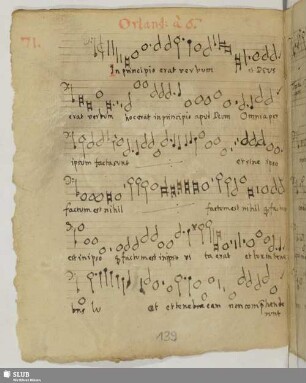 Orland: à 6.
71.
In principio erat verbum et Deus
erat verbum hoc erat in principio apud Deum Omnia per
ipsum facta sunt et sine ipso
factum est nihil factum est nihil qd factum
est in ipso qd factum est in ipso vi ta erat et
bre lu et et tenebrae eam non comprehende
runt
139
SLUB